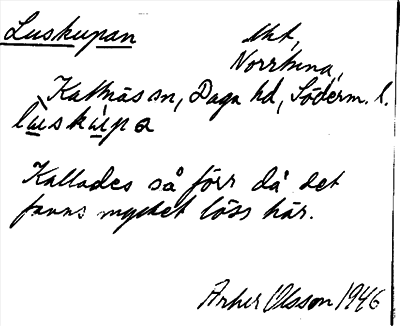 Luskupan lht,
Norrtuna,
Kattnäs sn, Daga hd, Söderm. l.
lùskúpa
Kallades så förr då det
fanns mycket löss här.
Arher Olsson 1946